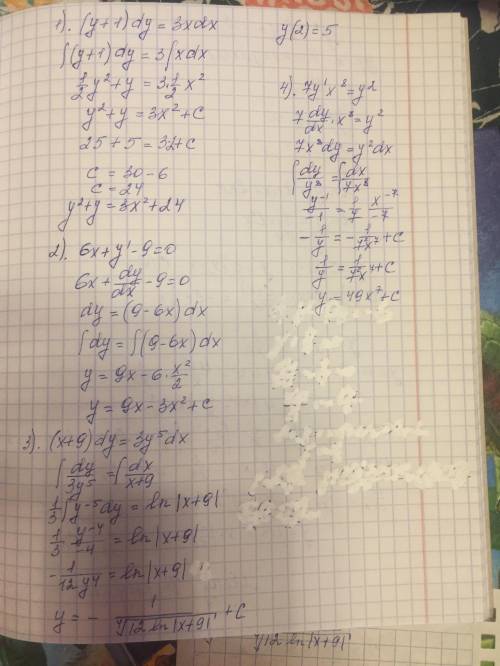 1). (y+1)dy = 3xdx
y(2)=5
∫(y+1)dy = 3∫xdx
1/2 y²+y = 3·1/2 x²
y²+y = 3x²+C
25+5 = 3·
C = 30-6
C = 24
y²+y = 3x²+24
2). 6x+y'-9=0
6x+dy/dx-9=0
dy=(9-6x)dx
∫dy=∫(9-6x)dx
y=9x-6·x²/2
y=9x-3x²+C
3). (x+9)dy=3y⁵dx
∫dy/3y⁵=∫dx/x+9
1/3∫y⁻⁵dy=ln|x+9|
1/3 y⁻⁴/-4=ln|x+9|
-1/12y⁴=ln|x+9|
y=-1/⁴√12 ln|x+9|+C
4). 7y'x⁸=y²
7dy/dx·x⁸=y²
7x⁸dy=y²dx
∫dy/y²=∫dx/7x⁸
y⁻¹/-1=1/7 x⁻⁷/-7
-1/y=-1/7²x⁷+C
1/y=1/7²x⁷+C
y=49x⁷+C
√12 ln|x+9|